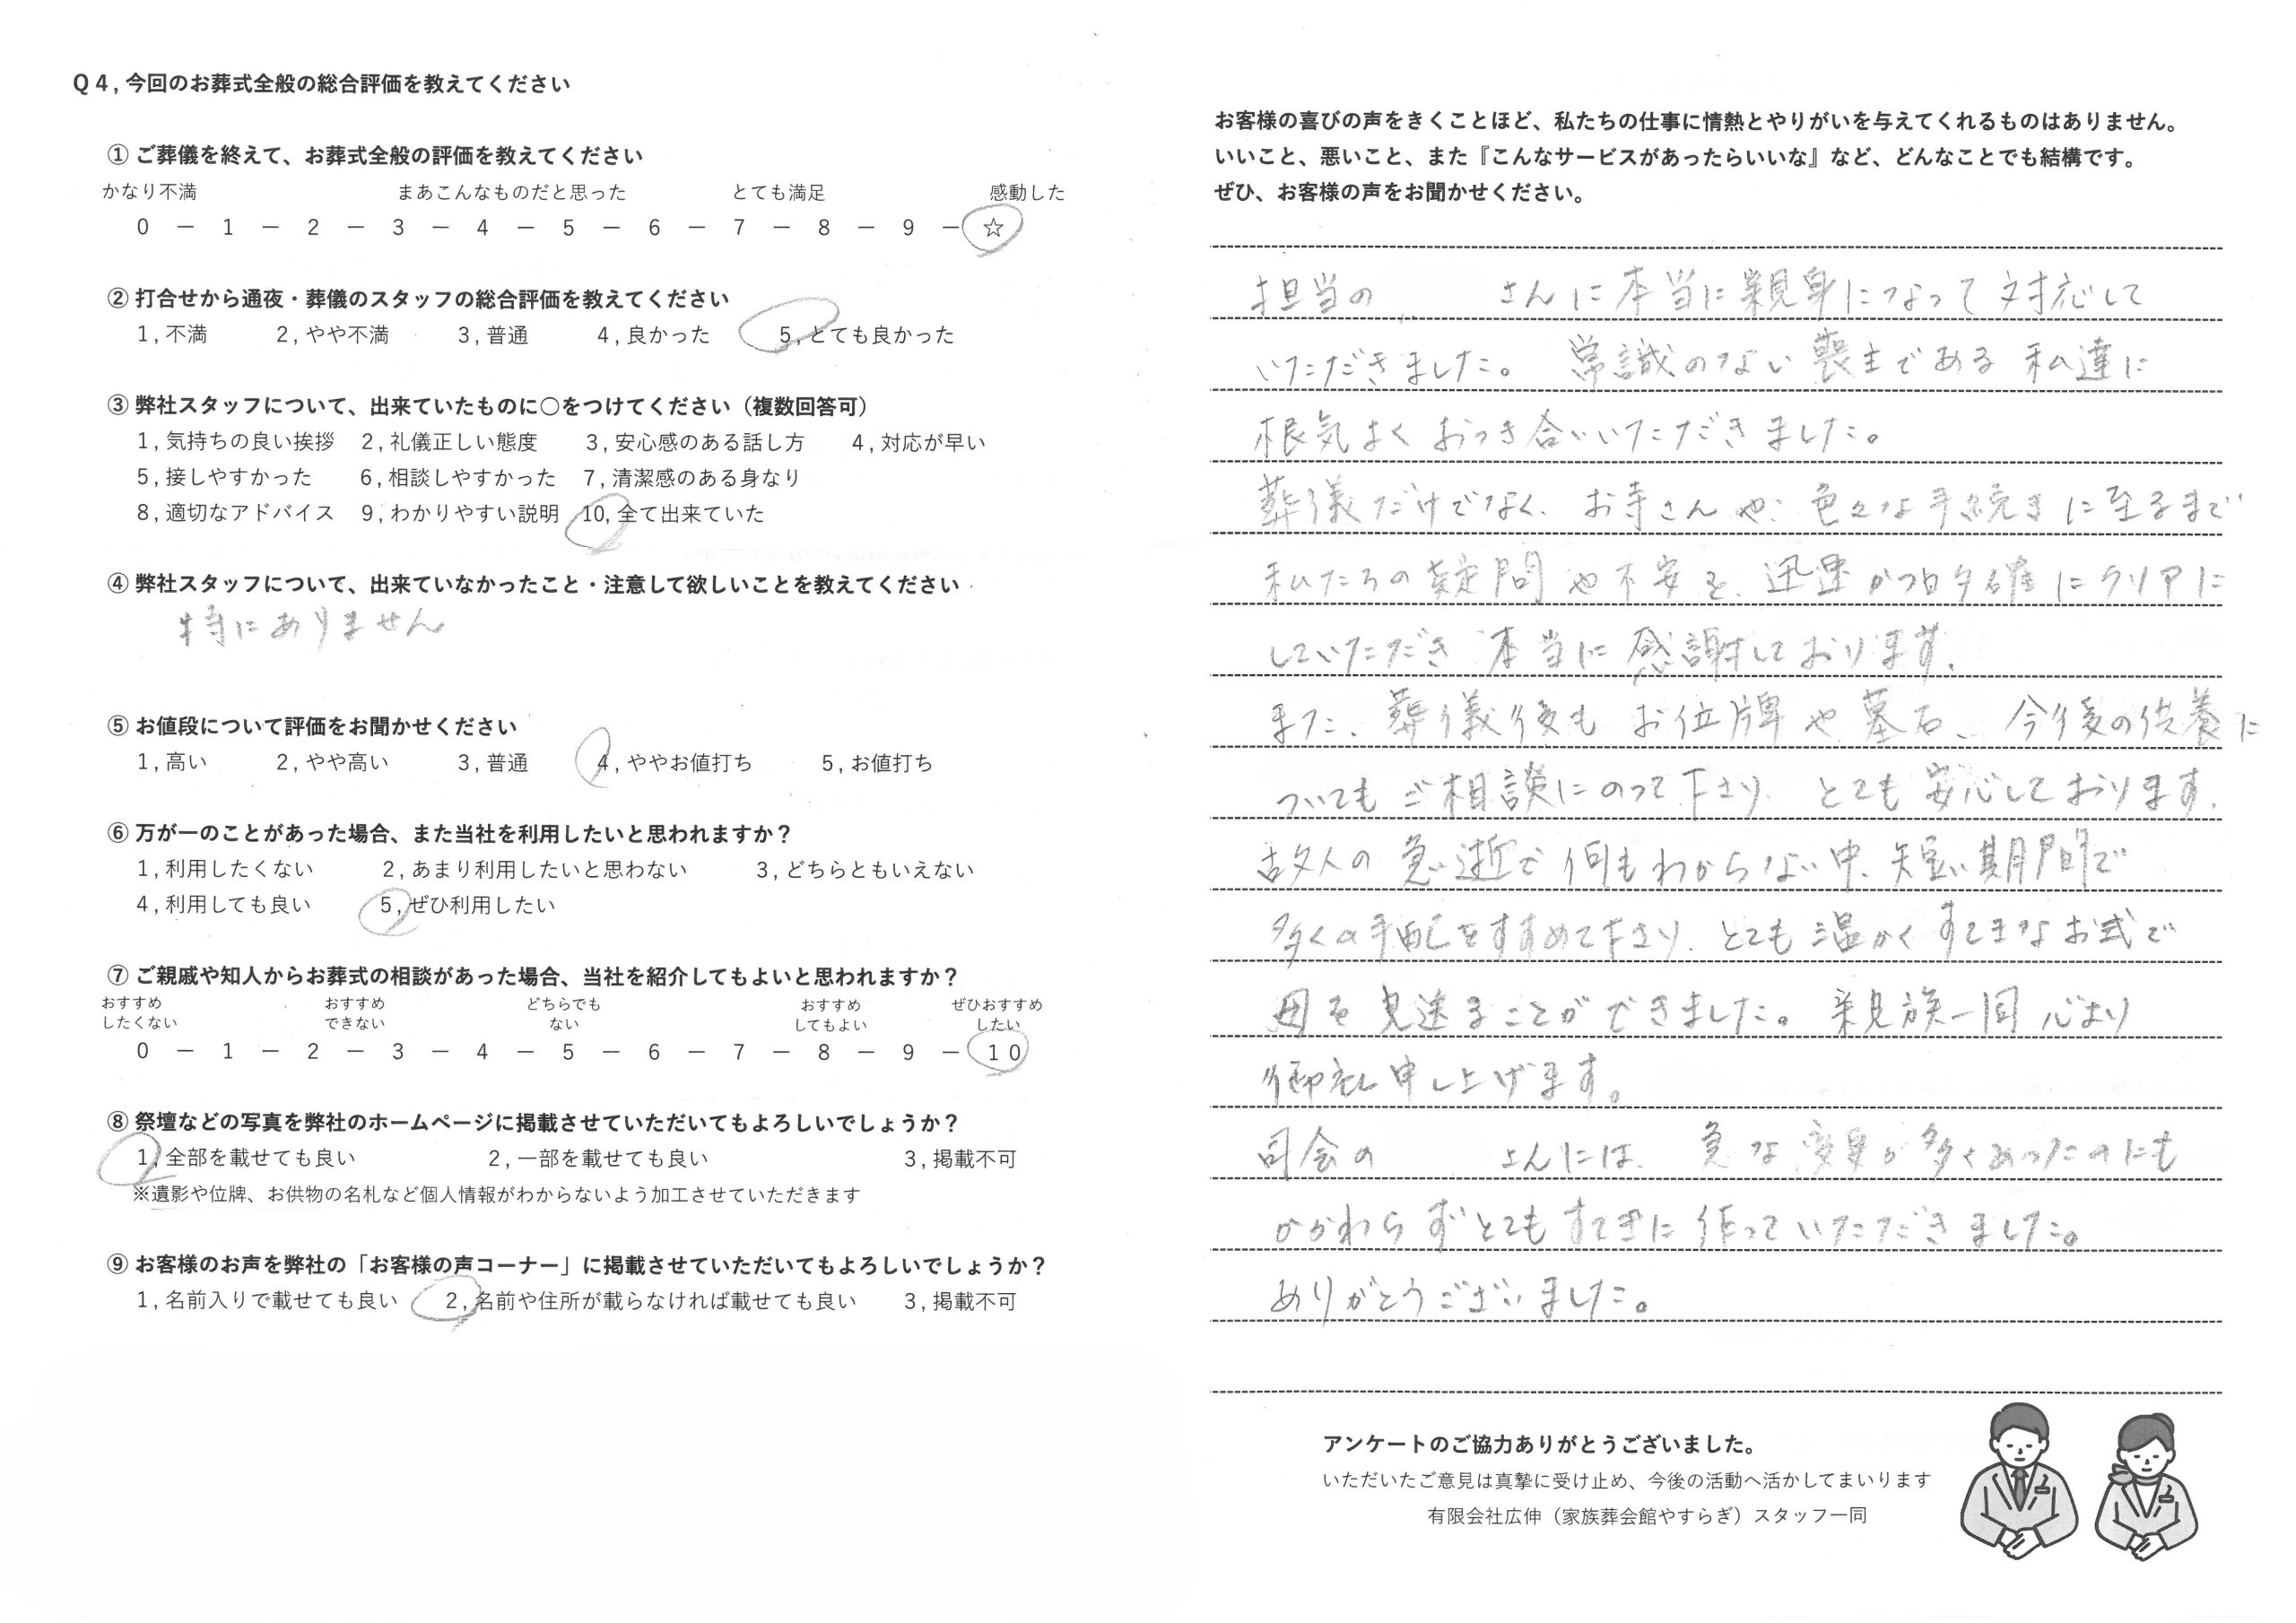 Q4,今回のお葬式全般の総合評価を教えてください
① ご葬儀を終えて、お葬式全般の評価を教えてください
かなり不満 まあこんなものだと思った とても満足 感動した
0 － 1 － 2 － 3 － 4 － 5 － 6 － 7 － 8 － 9 － ☆
② 打合せから通夜・葬儀のスタッフの総合評価を教えてください
1,不満 2,やや不満 3,普通 4,良かった 5,とても良かった
③ 弊社スタッフについて、出来ていたものに〇をつけてください（複数回答可）
1,気持ちの良い挨拶 2,礼儀正しい態度 3,安心感のある話し方 4,対応が早い
5,接しやすかった 6,相談しやすかった 7,清潔感のある身なり
8,適切なアドバイス 9,わかりやすい説明 10,全て出来ていた
④ 弊社スタッフについて、出来ていなかったこと・注意して欲しいことを教えてください
特にありません
⑤ お値段について評価をお聞かせください
1,高い 2,やや高い 3,普通 4,ややお値打ち 5,お値打ち
⑥ 万が一のことがあった場合、また当社を利用したいと思われますか？
1,利用したくない 2,あまり利用したいと思わない 3,どちらともいえない
4,利用しても良い 5,ぜひ利用したい
⑦ ご親戚や知人からお葬式の相談があった場合、当社を紹介してもよいと思われますか？
おすすめ おすすめ どちらでも おすすめ ぜひおすすめ
したくない できない ない してもよい したい
0 － 1 － 2 － 3 － 4 － 5 － 6 － 7 － 8 － 9 － 10
⑧ 祭壇などの写真を弊社のホームページに掲載させていただいてもよろしいでしょうか？
1,全部を載せても良い 2,一部を載せても良い 3,掲載不可
※遺影や位牌、お供物の名札など個人情報がわからないよう加工させていただきます
⑨ お客様のお声を弊社の「お客様の声コーナー」に掲載させていただいてもよろしいでしょうか？
1,名前入りで載せても良い 2,名前や住所が載らなければ載せても良い 3,掲載不可
お客様の喜びの声をきくことほど、私たちの仕事に情熱とやりがいを与えてくれるものはありません。
いいこと、悪いこと、また『こんなサービスがあったらいいな』など、どんなことでも結構です。
ぜひ、お客様の声をお聞かせください。
担当の さんに本当に親身になって対応して
いただきました。 常識のない喪主である私達に
根気よくおつき合いいただきました。
葬儀だけでなく、お寺さんや、色々な手続きに至るまで
私たちの疑問や不安を、迅速かつ的確にクリアに
していただき本当に感謝しております。
また、葬儀後もお位牌や墓石、今後の供養に
ついてもご相談にのって下さり、とても安心しております。
故人の急逝で何もわからない中、短い期間で
多くの手配をすすめて下さり、とても温かくすてきなお式で
母を見送ることができました。親族一同心より
御礼申し上げます。
司会の さんには、急な変更が多くあったのにも
かかわらずとてもすてきに作っていただきました。
ありがとうございました。
アンケートのご協力ありがとうございました。
いただいたご意見は真摯に受け止め、今後の活動へ活かしてまいります
有限会社広伸（家族葬会館やすらぎ）スタッフ一同